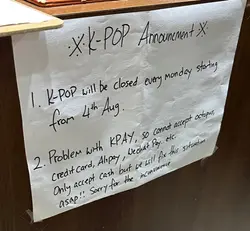 ※K-POP Announcement※
1. K-POP will be closed every monday starting
from 4th Aug.
2. Problem with KPAY, so cannot accept octopus,
creditcard, Alipay, Wechat Pay. etc.
Only accept cash but we will fix this situation
asap!! Sorry for the